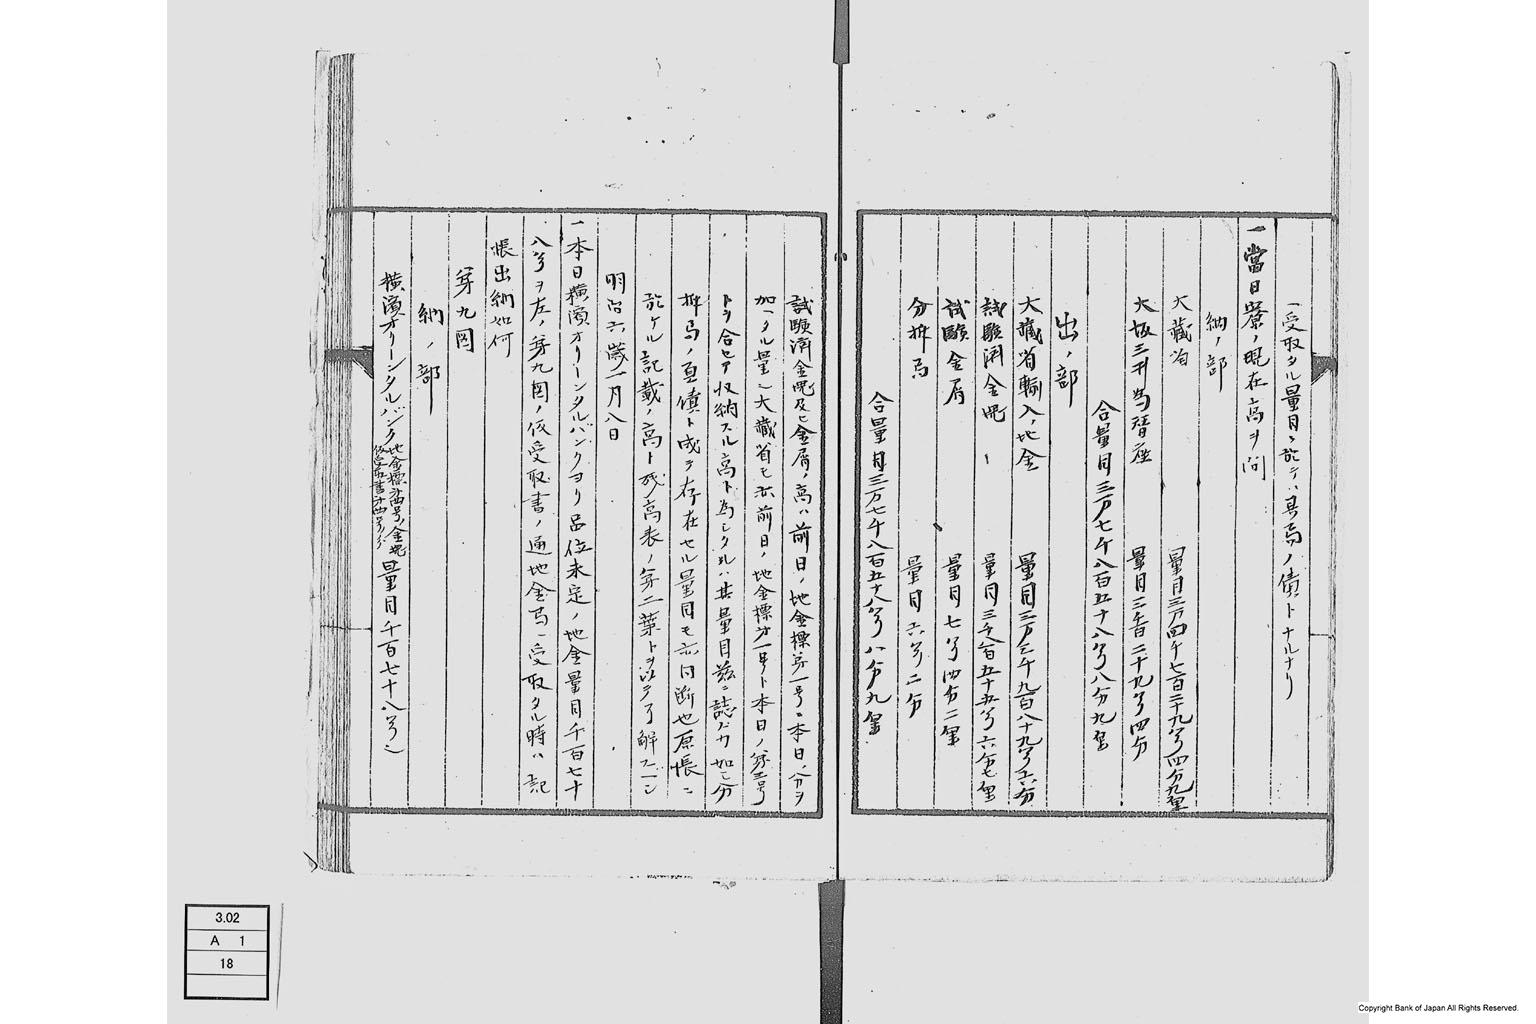 一受取タル量目ニ於テハ其局ノ債トナルナリ
一當日寮ノ現在高ヲ問
納ノ部
大藏省 量目三万四千七百二十九匁四分九厘
大坂三井為替座 量目三千百二十九匁四分
合量目三万七千八百五十八匁八分九厘
出ノ部
大藏省輸入ノ地金 量目三万三千九百八十九匁六分
試驗濟金塊 量目三千八百五十五匁六分七厘
試驗金屑 量目七匁四分二厘
分析局 量目六匁二分
合量目三万七千八百五十八匁八分九厘
試驗濟金塊及ヒ金屑ノ高ハ前日ノ地金標第一号ニ本日ノ分ヲ
加ヘタル量ニ大藏省モ亦前日ノ地金標第一号ト本日ノ第三号
トヲ合セテ収納スル高ト為シタルハ其量目茲ニ誌スカ如シ分
析局ノ負債ト成テ存在セル量目モ亦同断也原帳ニ
於ケル記載ノ高ト残高表ノ第二葉トヲ以テ了解スベシ
明治六歳一月八日
一本日横濱オリーンタルバンクヨリ品位未定ノ地金量目千百七十
八匁ヲ左ノ第九図ノ仮受取書ノ通地金局ニ受取タル時ハ記
帳出納如何
第九図
納ノ部
横濱オリーンタルバンク 地金標第四号ノ金塊 量目千百七十八匁